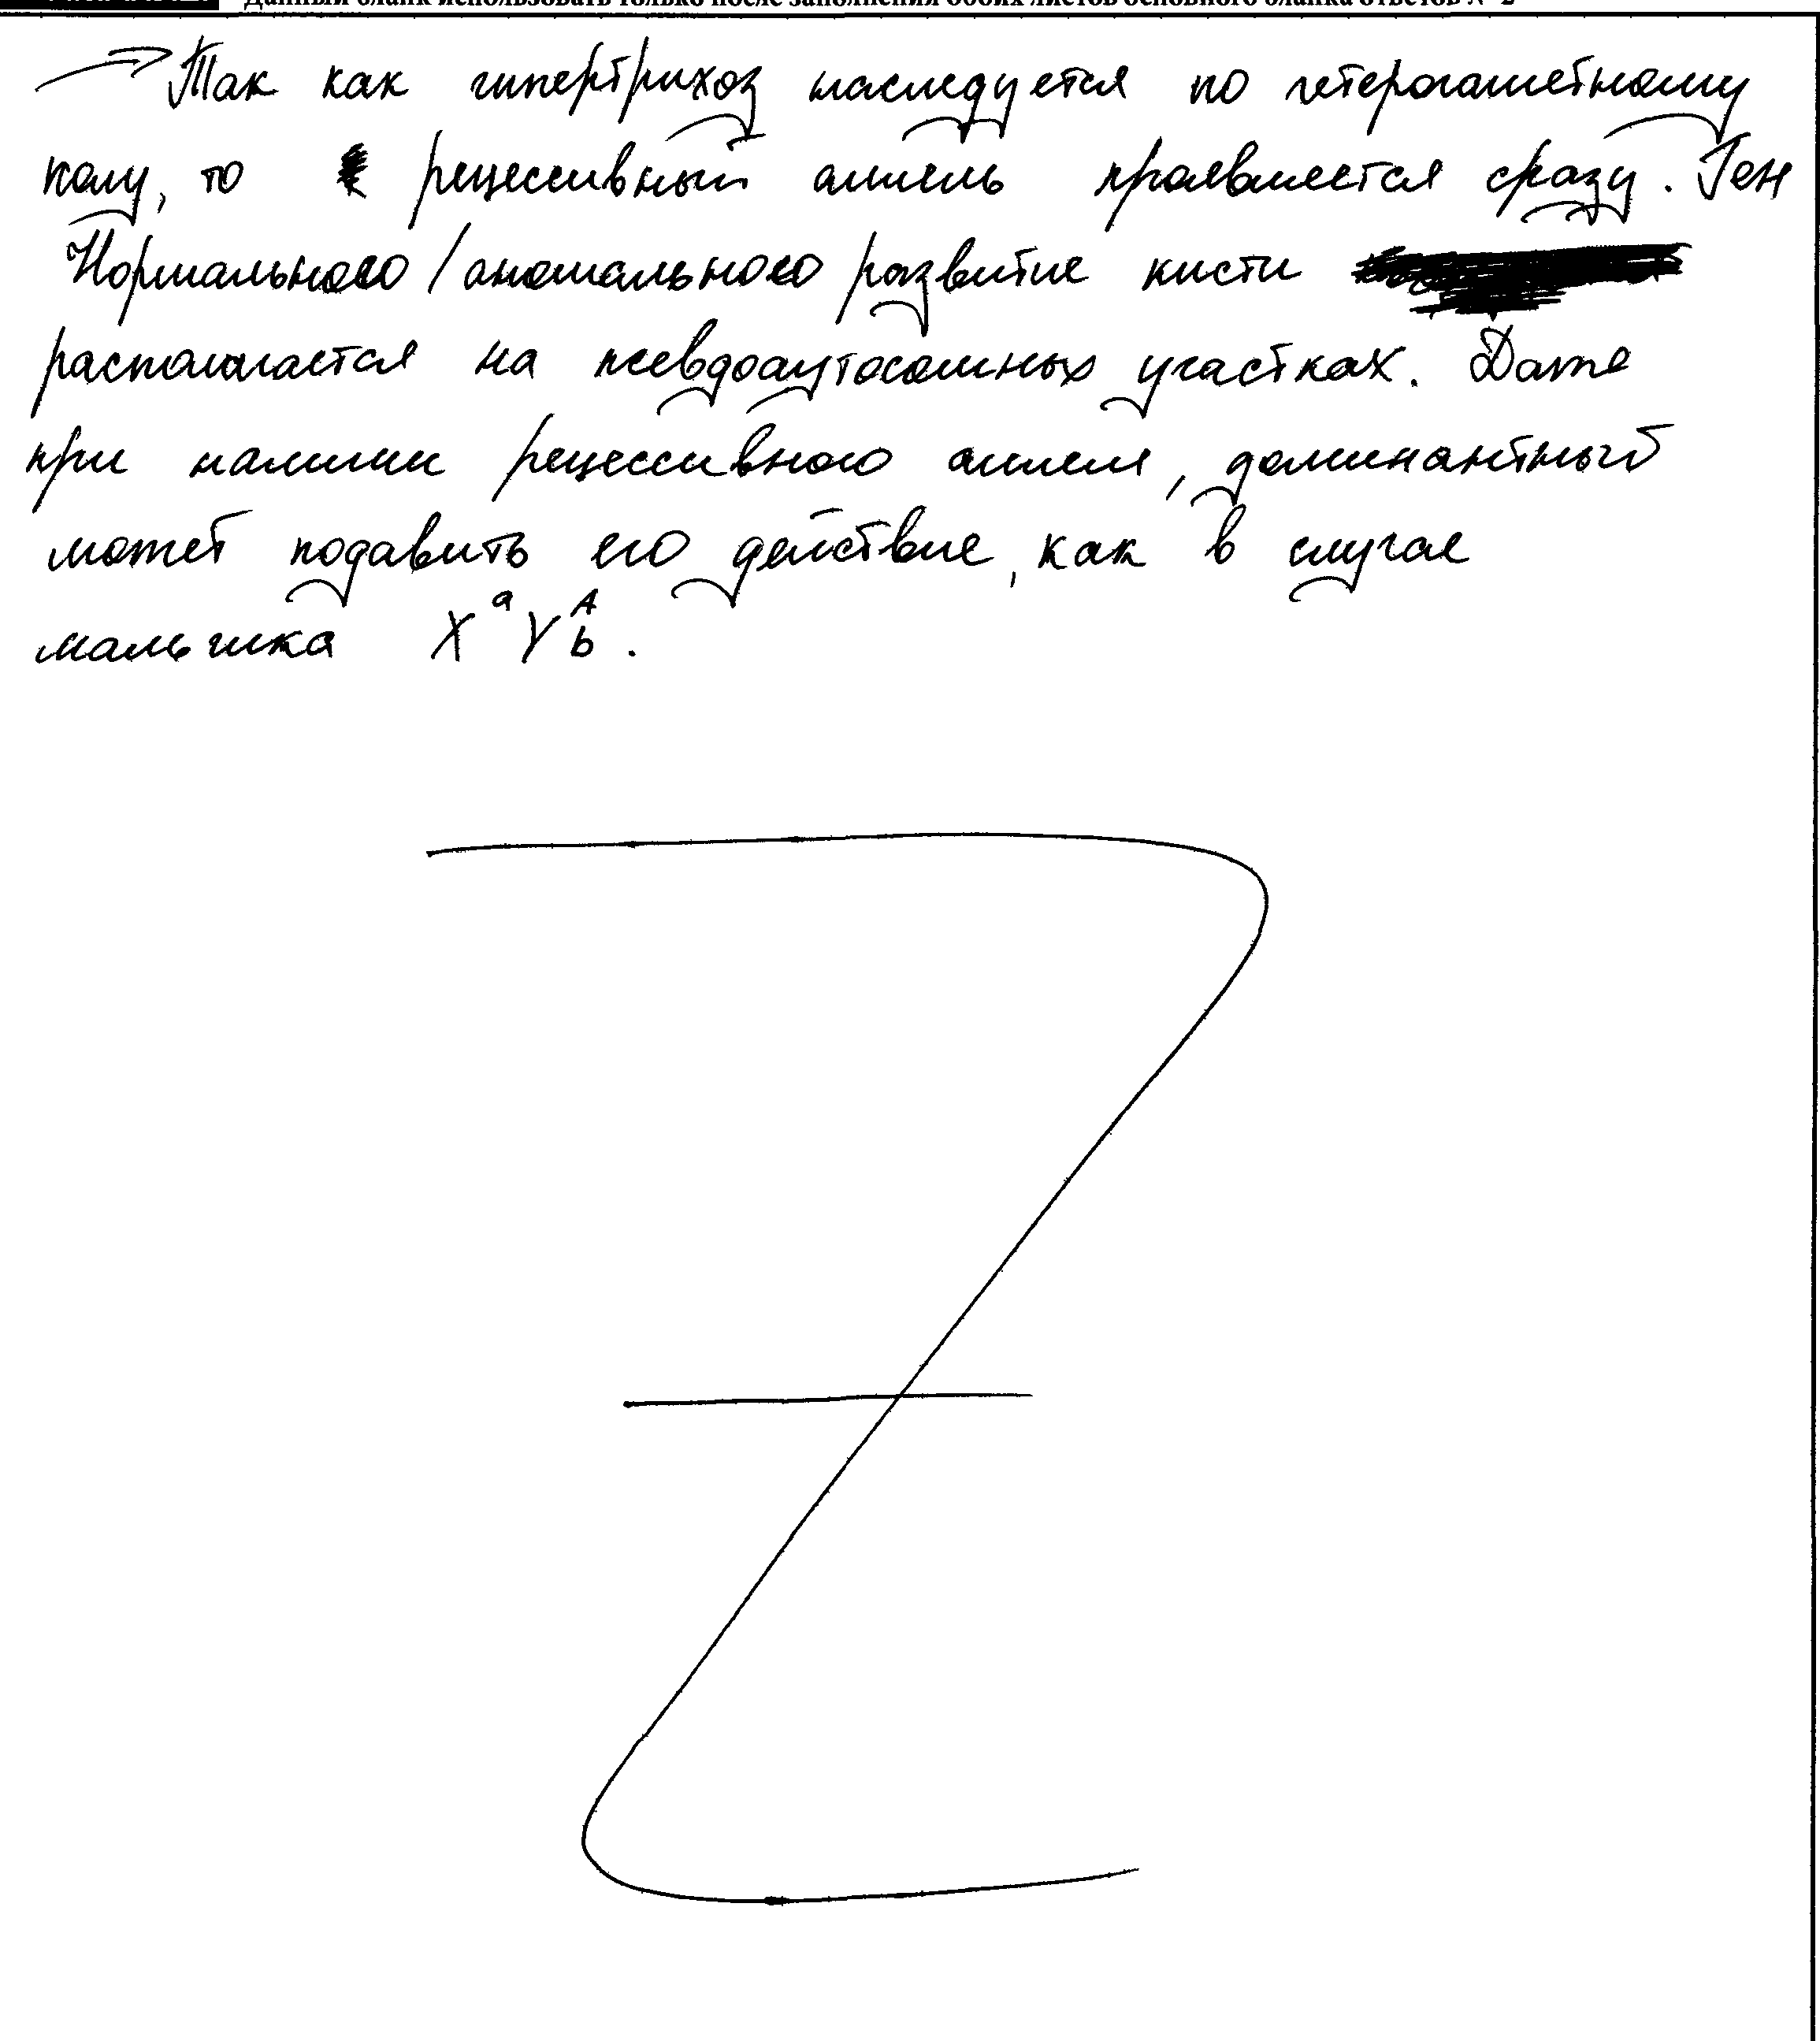 Данный бланк использовать только после заполнения обоих листов основного бланка ответов № 2
Так как гипертрихоз наследуется по гетерогаметному
полу, то рецессивный аллель проявляется сразу. Ген
Нормального/аномального развитие кисти
располагается на псевдоаутосомных участках. Даже
при налиии рецессивного аллеля, доминантный
может подавить его действие, как в случае
мальчика XᵃYᴬb.